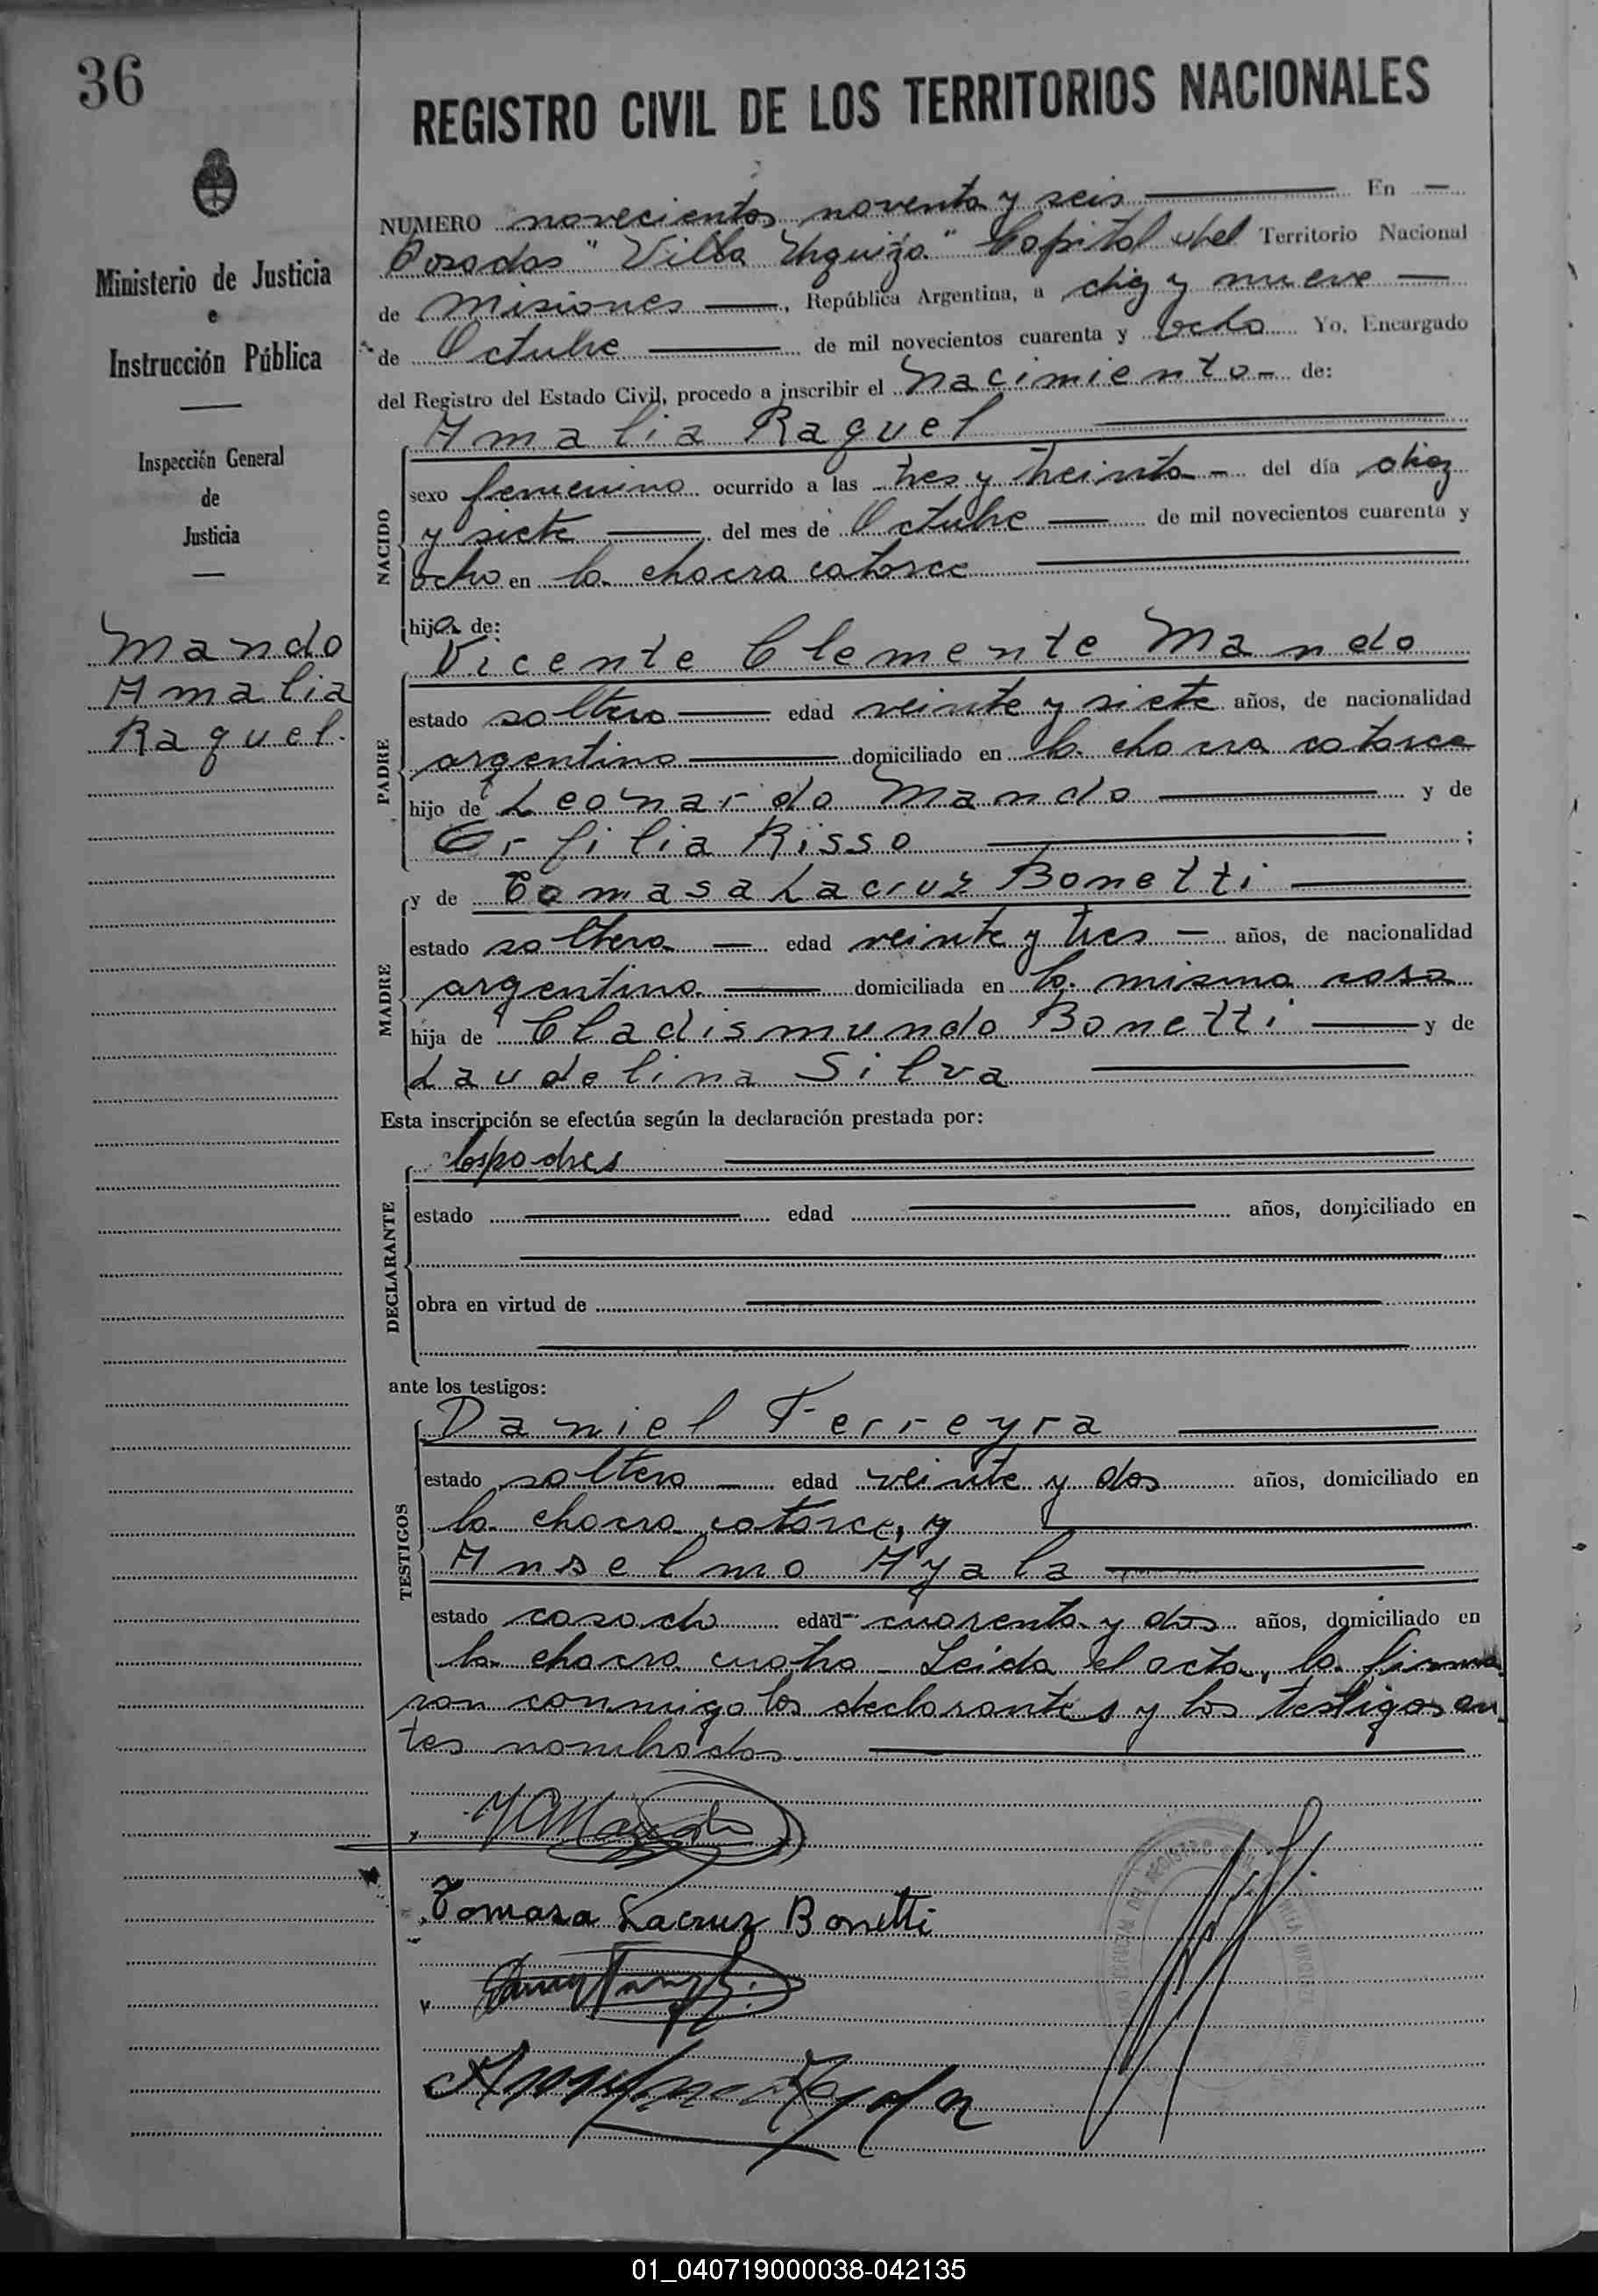 36
REGISTRO CIVIL DE LOS TERRITORIOS NACIONALES
Ministerio de Justicia
e
Instrucción Pública
Inspección General
de
Justicia
Mando
Amalia
Raquel.
NUMERO novecientos noventa y seis En
Posadas "Villa Urquiza" Capital del Territorio Nacional
de Misiones, República Argentina, a diez y nueve
de Octubre de mil novecientos cuarenta y ocho Yo, Encargado
del Registro del Estado Civil, procedo a inscribir el nacimiento de:
Amalia Raquel
NACIDO
sexo femenino ocurrido a las tres y treinta del día diez
y siete del mes de Octubre de mil novecientos cuarenta y
ocho en la chacra catorce
hija de:
Vicente Clemente Mando
PADRE
estado soltero edad veinte y siete años, de nacionalidad
argentino domiciliado en la chacra catorce
hijo de Leonardo Mando y de
Orfilia Risso ;
y de Tomasa Lacruz Bonetti
MADRE
estado soltera edad veinte y tres años, de nacionalidad
argentina domiciliada en la misma casa
hija de Cladismundo Bonetti y de
Laudelina Silva
Esta inscripción se efectúa según la declaración prestada por:
los padres
DECLARANTE
estado edad años, domiciliado en
obra en virtud de
ante los testigos:
Daniel Ferreyra
TESTIGOS
estado soltero edad veinte y dos años, domiciliado en
la chacra catorce, y
Anselmo Ayala
estado casado edad cuarenta y dos años, domiciliado en
la chacra cuatro - Leida el acta, la firma
ron conmigo los declarantes y los testigos an
tes nombrados.
Tomasa Lacruz Bonetti
Anselmo Ayala
01_040719000038-042135